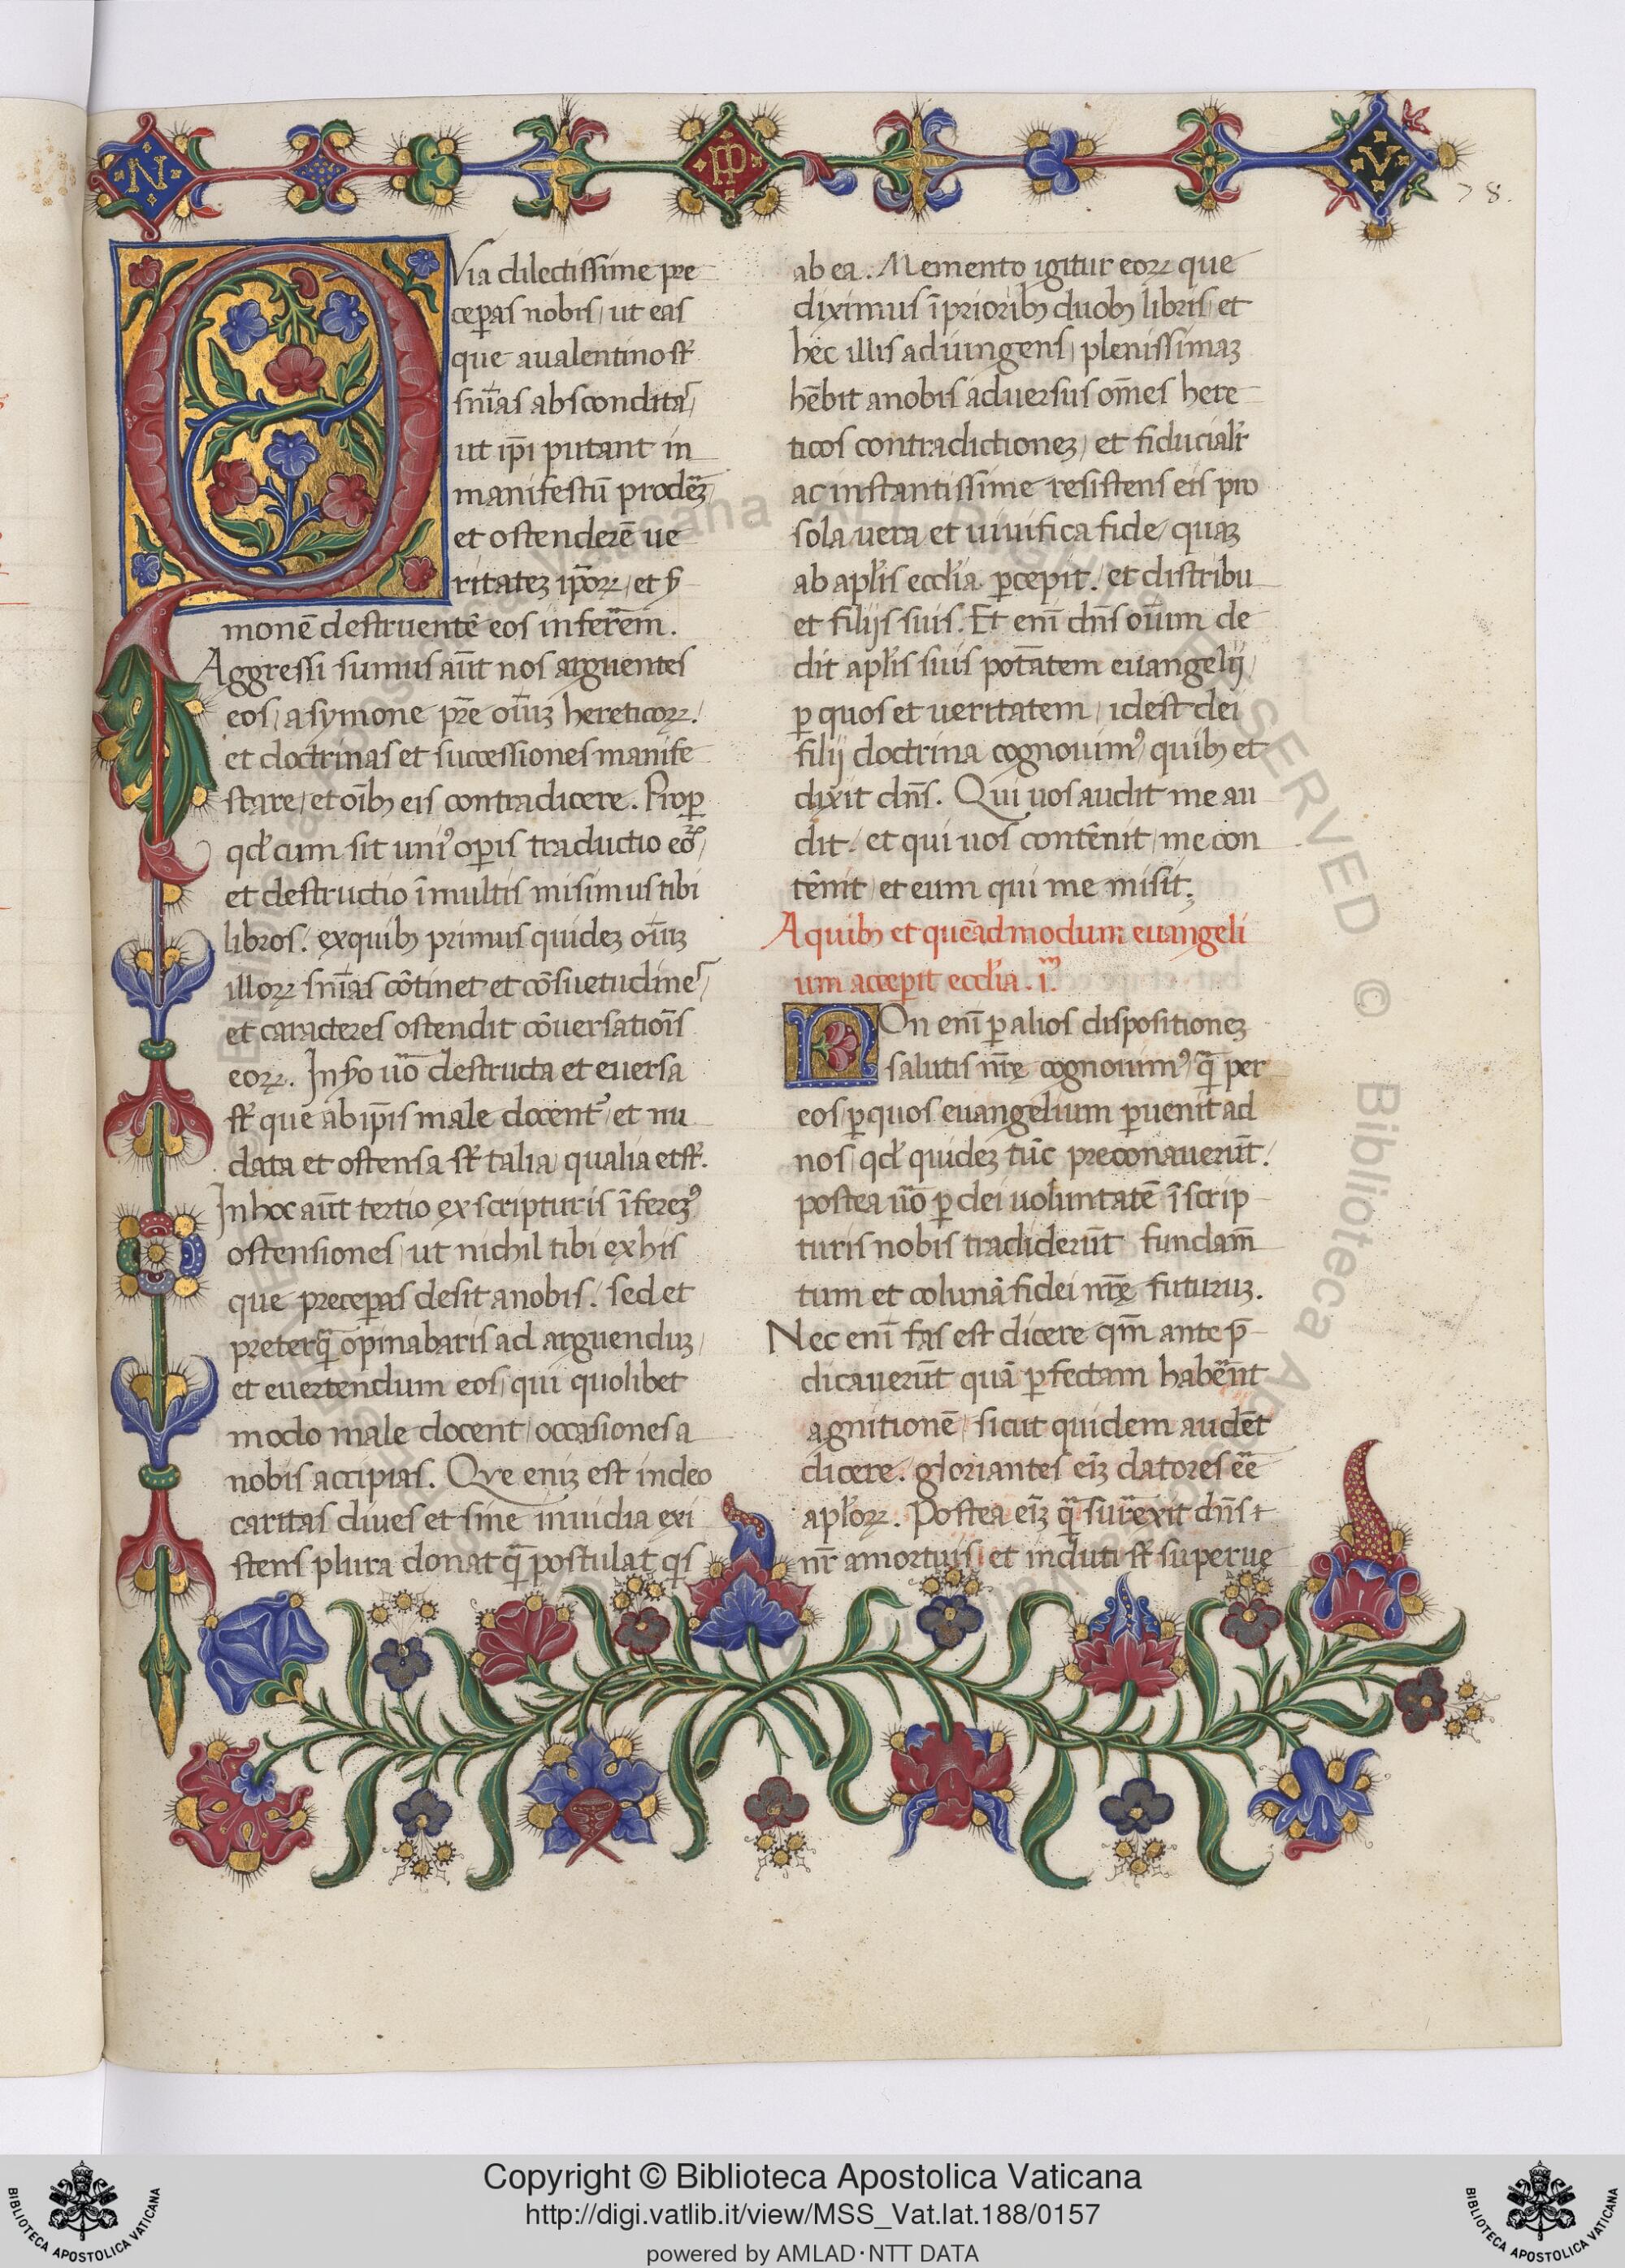 N
PP
V
78.
QVia dilectissime pre
cep̱as nobis / ut eas
que aualentino st̄
sn̄ias abscondita᷒ /
ut ip̄i putant in
manifestū prodeꝫ̄ /
et ostenderē ue
ritateꝫ ip̄oꝝ / et ẜ
monē destruentē eos inferēm.
Aggressi sumus aūt nos arguentes
eos / a symone pr̄e oīuꝫ hereticoꝝ /
et doctrinas et successiones manife
stare / et oībꝫ eis contradicere. Prop̱
qd̄ cum sit uniꝰ op̱is traductio eoꝝ /
et destructio ī multis misimus tibi
libros. exquibꝫ primus quideꝫ oīuꝫ
illoꝝ sn̄ias cōtinet et cōsuetudine᷒ /
et caracteres ostendit cōuersatiōīs
eoꝝ. In ẜo uō destructa et euersa
st̄ que ab ip̄is male docentᷣ et nu
data et ostensa st̄ talia qualia et st̄.
In hoc aūt tertio ex scripturis īfereꝫꝰ
ostensiones / ut nichil tibi ex his
que precep̱as desit anobis. sed et
preterq̄ opinabaris ad arguenduꝫ /
et euertendum eos / qui quolibet
modo male docent / occasiones a
nobis accipias. Qve eniꝫ est in deo
caritas diues et sine inuidia exi
stens plura donat q̄ postulat qͥs
ab ea. Memento igitur eoꝝ que
diximus ī prioribꝫ duobꝫ libris / et
hec illis adiungens / plenissimaꝫ
hēbit anobis aduersus om̄es here
ticos contradictioneꝫ / et fiducialr̄
ac instantissime resistens eis pro
sola uera et uiuifica fide / quaꝫ
ab apl̄is eccl̄ia ꝑcepit / et distribu
et filijs suis. Et enī dn̄s oīum de
dit apl̄is suis potātem euangelij /
ꝑ quos et ueritatem / idest dei
filij doctrina cognouimꝰ / quibꝫ et
dixit dn̄s. Qui uos audit me au
dit / et qui uos contēnit / me con
tēnit / et eum qui me misit;
A quibꝫ et quēadmodum euangeli
um accep̱it eccl̄ia. i.ͫ
NOn enī ꝑ alios dispositioneꝫ
salutis nr̄ę cognouimꝰ / q̄ per
eos / ꝑ quos euangelium ꝑuenit ad
nos / qd̄ quideꝫ tūc preconauerūt /
postea uō ꝑ dei uoluntatē ī scrip
turis nobis tradiderūt fundam̄
tum et colunā fidei nr̄ę futuruꝫ.
Nec enī fas est dicere qm̄ ante p̄
dicauerūt quā ꝑfectam habēnt
agnitionē / sicut quidem audēt
dicere / gloriantes eīꝫ datores eē
apl̄oꝝ. Postea eīꝫ q̄ surexit dn̄s
nr̄ amortuis / et induti st̄ superue
Copyright © Biblioteca Apostolica Vaticana
http://digi.vatlib.it/view/MSS_Vat.lat.188/0157
powered by AMLAD·NTT DATA
BIBLIOTECA APOSTOLICA VATICANA
BIBLIOTECA APOSTOLICA VATICANA